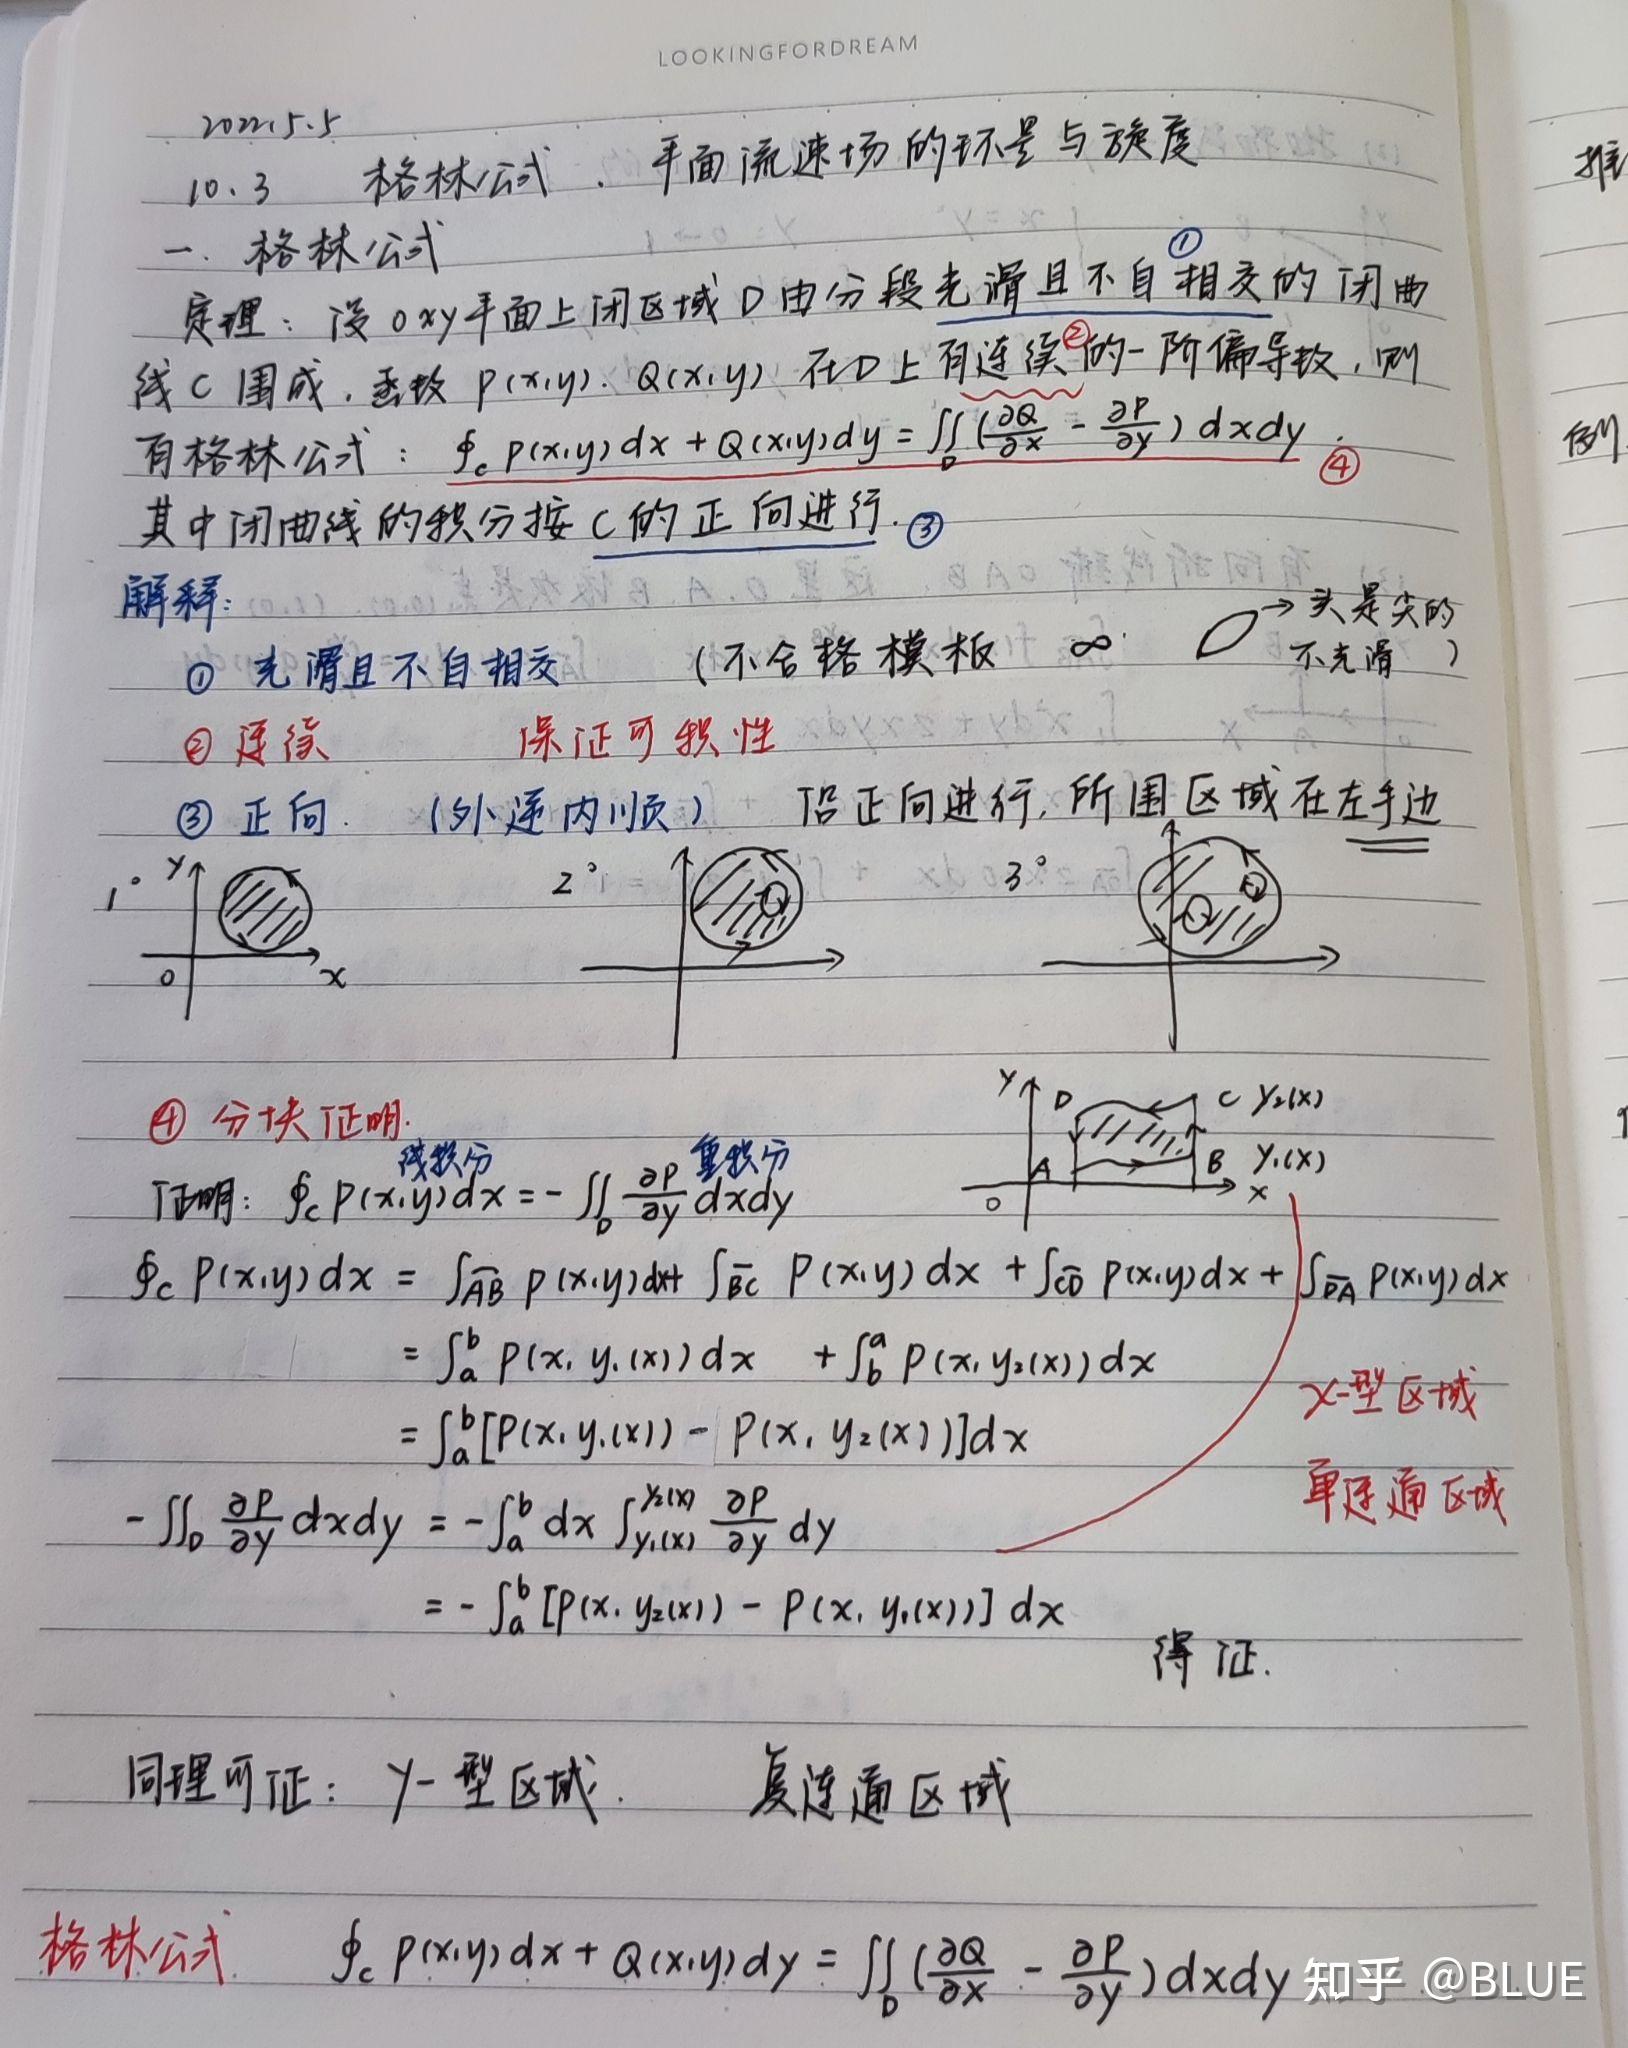 LOOKINGFORDREAM
2022.5.5
10.3 格林公式、平面流速场的环量与旋度
一. 格林公式
①
定理：设oxy平面上闭区域D由分段光滑且不自相交的闭曲
线C围成，函数P(x,y)、Q(x,y)在D上有连续②的一阶偏导数，则
有格林公式：∮_C P(x,y)dx+Q(x,y)dy=∬_D(∂Q/∂x-∂P/∂y)dxdy. ④
其中闭曲线的积分按C的正向进行. ③
解释:
① 光滑且不自相交 (不合格模板 ∞ → 头是尖的
不光滑 )
② 连续 保证可积性
③ 正向. (外逆内顺) 沿正向进行,所围区域在左手边
1° y 0 x 2° 3°
④ 分块证明.
y D C y₂(x)
A B y₁(x)
0 x
线积分 重积分
证明：∮_C P(x,y)dx=-∬_D ∂P/∂y dxdy
∮_C P(x,y)dx = ∫_AB P(x,y)dx+ ∫_BC P(x,y)dx + ∫_CD P(x,y)dx + ∫_DA P(x,y)dx
= ∫_a^b P(x, y₁(x))dx + ∫_b^a P(x, y₂(x))dx
x-型区域
= ∫_a^b [P(x, y₁(x)) - P(x, y₂(x))]dx
单连通区域
-∬_D ∂P/∂y dxdy = -∫_a^b dx ∫_{y₁(x)}^{y₂(x)} ∂P/∂y dy
= -∫_a^b [P(x, y₂(x)) - P(x, y₁(x))] dx
得证.
同理可证： y-型区域. 复连通区域
格林公式 ∮_C P(x,y)dx+Q(x,y)dy = ∬_D(∂Q/∂x - ∂P/∂y)dxdy
知乎 @BLUE
推
例